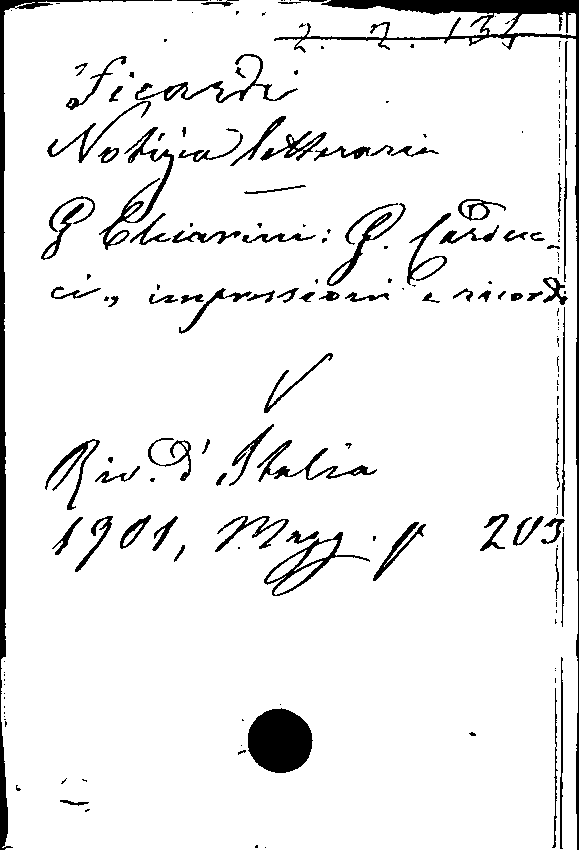 2. 2. 134
Ficardi
Notizia letteraria
G Chiarini: G. Carduc-
ci., impressioni e ricordi
Riv. d'Italia
1901, Magg. p 203